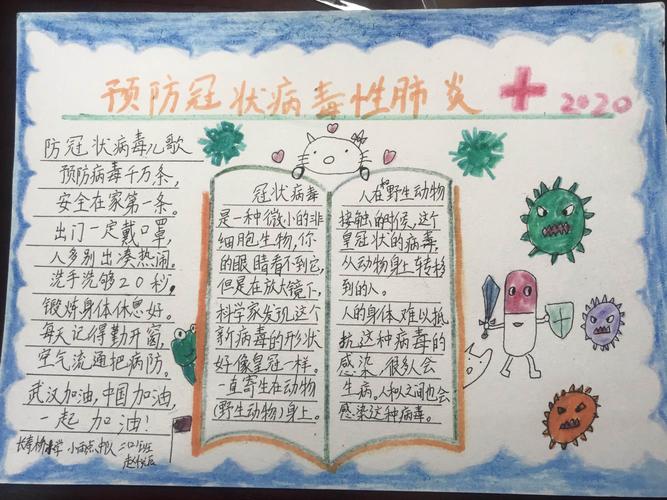 预防冠状病毒性肺炎 2020
防冠状病毒儿歌
预防病毒千万条，
安全在家第一条。
出门一定戴口罩，
人多别出凑热闹。
洗手洗够20秒，
锻炼身体休息好。
每天记得勤开窗，
空气流通把病防。
武汉加油，中国加油，
一起加油！
冠状病毒
是一种微小的非
细胞生物，你
的眼睛看不到它，
但是在放大镜下，
科学家发现这个
新病毒的形状
好像皇冠一样。
一直寄生在动物
(野生动物)身上。
人在野生动物
接触的时候，这个
皇冠状的病毒，
从动物身上转移
到的人。
人的身体难以抵
抗这种病毒的
感染，很多人会
生病。人和人之间也会
感染这种病毒。